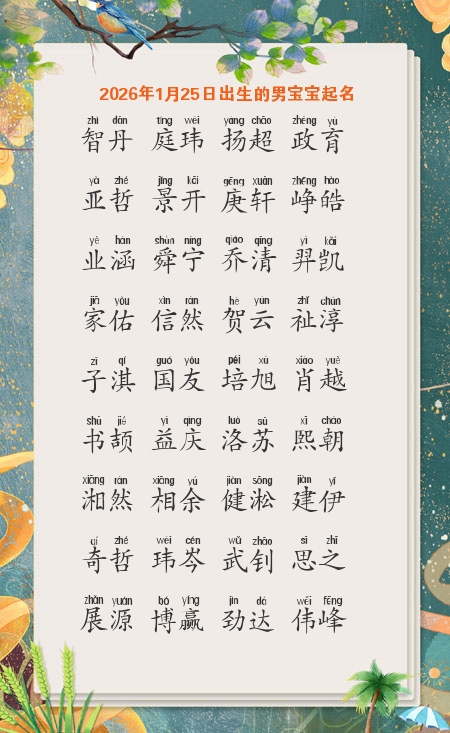 2026年1月25日出生的男宝宝起名
zhì dān tíng wěi yáng chāo zhèng yù
智丹 庭玮 扬超 政育
yà zhé jǐng kāi gēng xuān zhēng hào
亚哲 景开 庚轩 峥皓
yè hán shùn níng qiáo qīng yì kǎi
业涵 舜宁 乔清 羿凯
jiā yòu xìn rán hè yún zhǐ chún
家佑 信然 贺云 祉淳
zǐ qí guó yǒu péi xù xiào yuè
子淇 国友 培旭 肖越
shū jié yì qìng luò sū xī cháo
书颉 益庆 洛苏 熙朝
xiāng rán xiāng yú jiàn sōng jiàn yī
湘然 相余 健淞 建伊
qí zhé wěi cén wǔ zhāo sī zhī
奇哲 玮岑 武钊 思之
zhǎn yuán bó yíng jìn dá wěi fēng
展源 博赢 劲达 伟峰